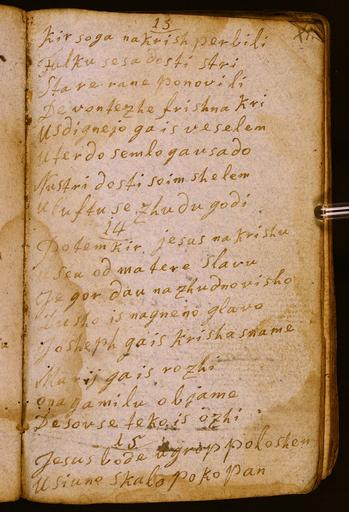 13
Kir soga nakrish perbili
Folku sesa dosti stri
Stare rane ponovili
De von tezhe frishna kri
Usdignejo ga is veselem
Uterdo semlo ga usado
Nustri dosti soim shelem
U luftu se zhudu godi
14
Potem kir jesus na krishu
useu od matere slavu
Je gor dau na zhudno visho
Dusho is nagnejo glavo
Josheph ga is krisha sname
Marij ga is rozhi
ona ga milu objame
De sovse teko is ozhi
15
Jesus bode u grop poloshen
Usiuno skalo pokopan